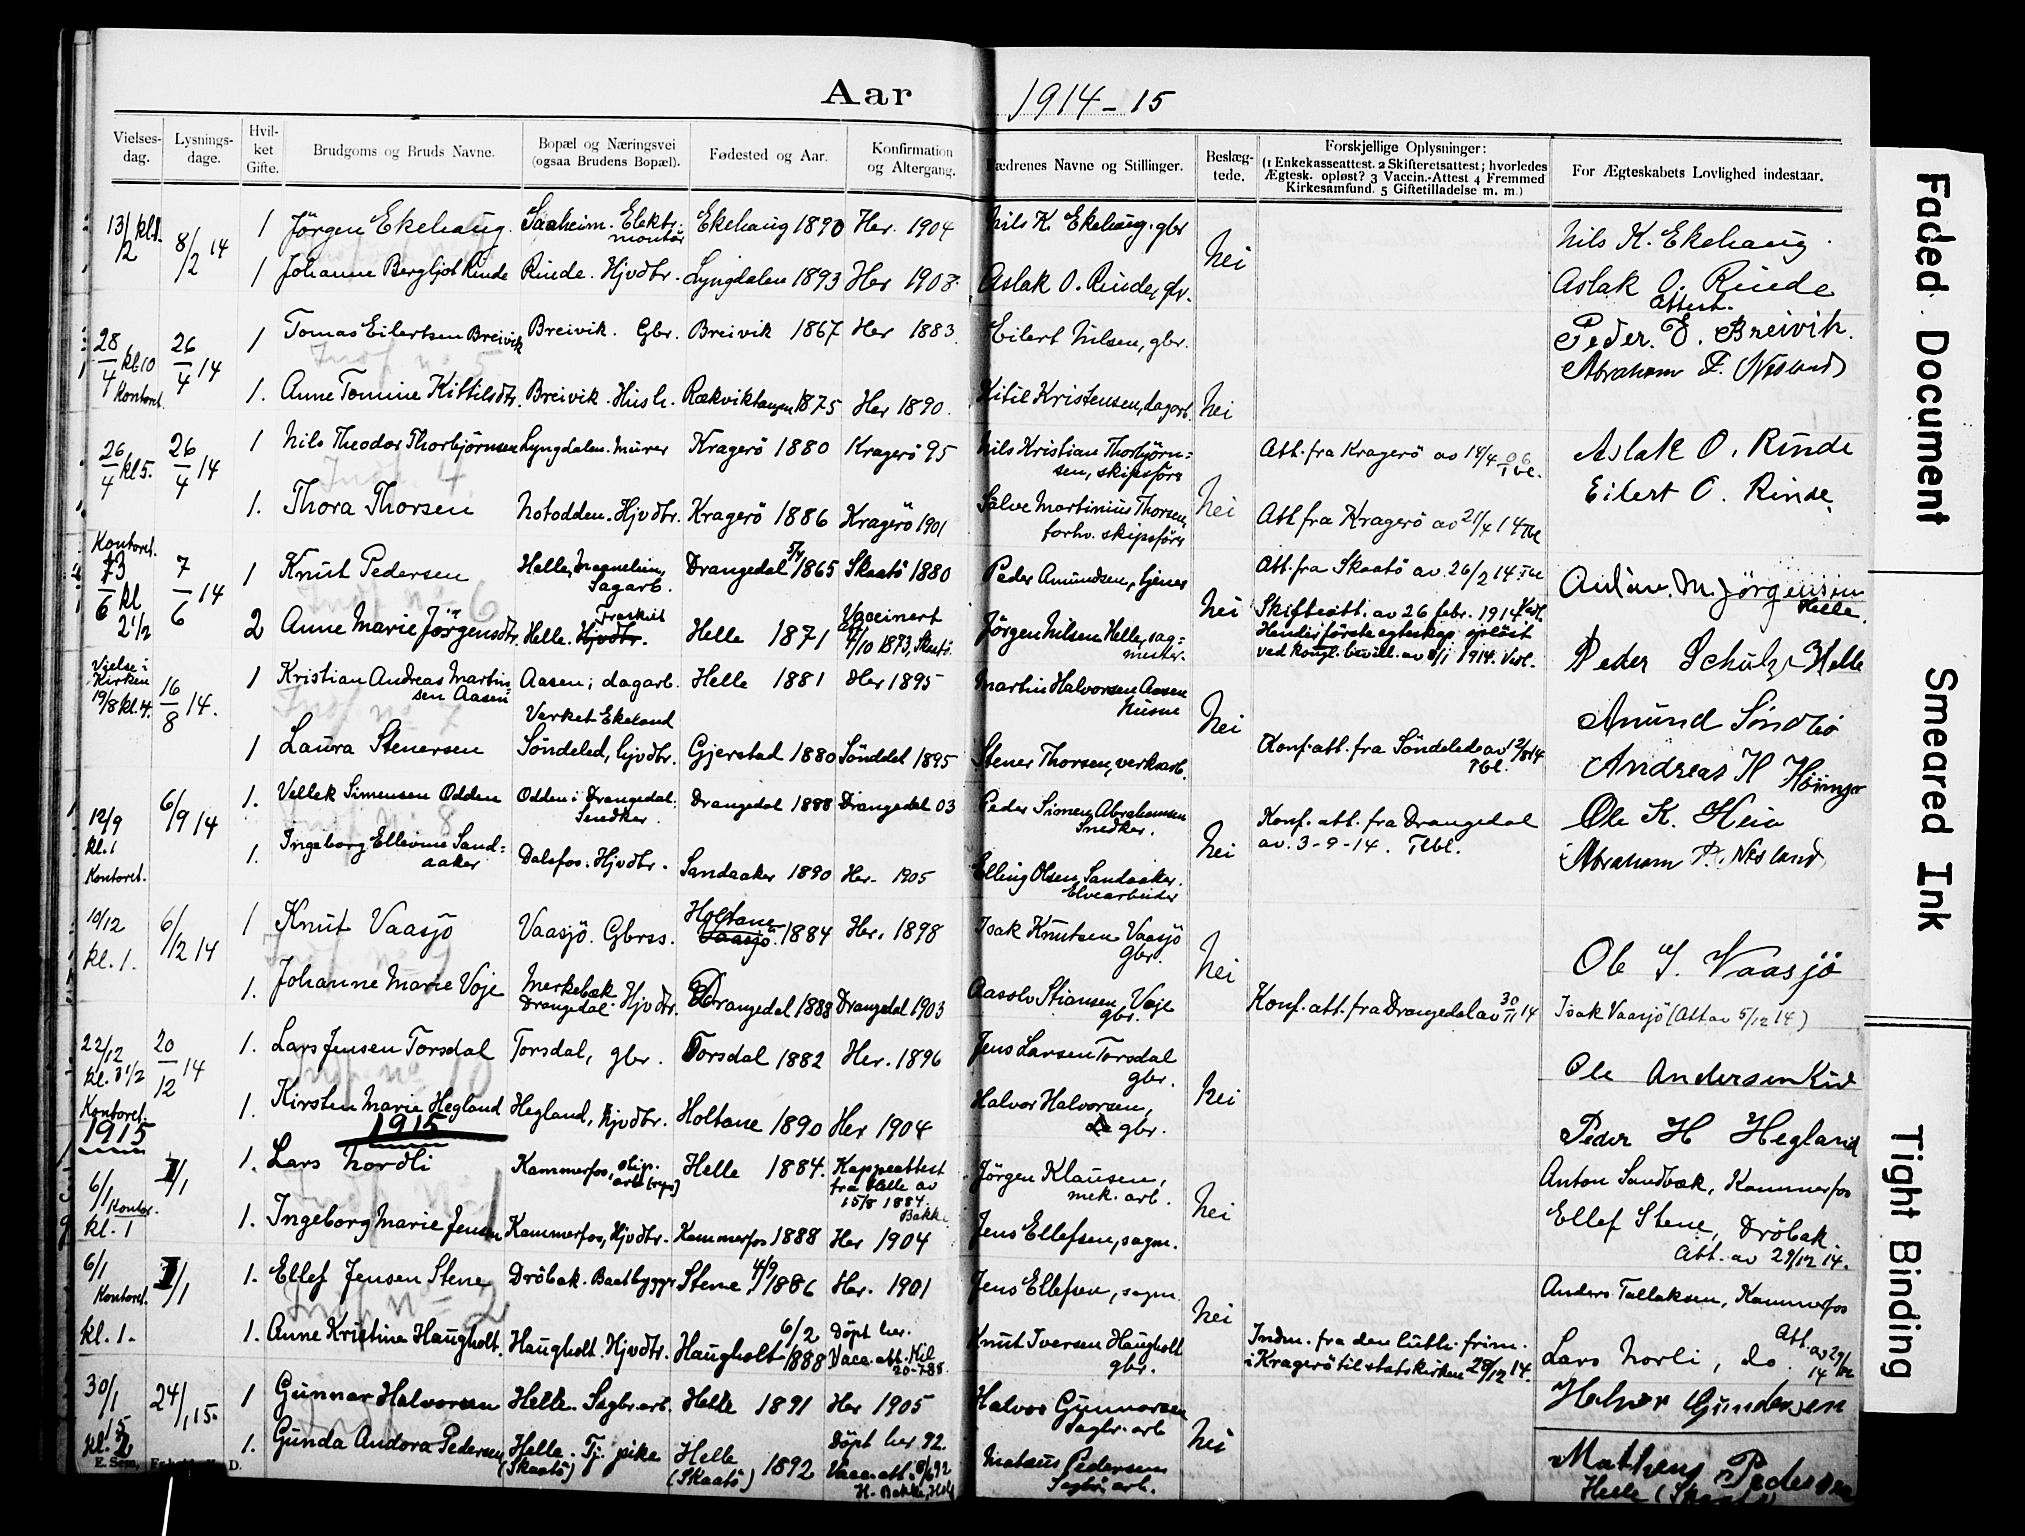 Aar 1914-15
Vielses-dag. Lysnings-dage. Hvil-ket Gifte. Brudgoms og Bruds Navne. Bopæl og Næringsvei (ogsaa Brudens Bopæl). Fødested og Aar. Konfirmation og Altergang. Fædrenes Navne og Stillinger. Beslæg-tede. Forskjellige Oplysninger: (1 Enkekasseattest. 2 Skifteretsattest; hvorledes Ægtesk. opløst? 3 Vaccin.-Attest 4 Fremmed Kirkesamfund. 5 Giftetilladelse m. m.) For Ægteskabets Lovlighed indestaar.
13/2 8/2 14 1 Jörgen Ekehaug. Saaheim. Elektr. montör Ekehaug 1890 Her. 1904 Nils K. Ekehaug. gbr Nei Nils K. Ekehaug.
1 Johanne Bergljot Rinde Rinde. Hjvdtr. Lyngdalen 1893 Her 1908. Aslak O. Rinde, Aslak O. Rinde
Attest.
28/4 kl 10 Kontoret. 26/4 14 1 Tomas Eilertsen Breivik Breivik. Gbr. Breivik 1867 Her 1883. Eilert Nilsen, gbr. Peder. E. Breivik.
1. Anne Tomine Kittilsdtr. Breivik. Hush. Rækviktangen 1875 Her 1890. Kitil Kristensen, dagarb. Nei Abraham P. Nesland
26/4 kl 5. 26/4 14 1 Nils Theodor Thorbjörnsen Lyngdalen. Murer Kragerö 1880 Kragerö 95 Nils Kristian Thorbjörn=sen, skipsförer Nei Att. fra Kragerö av Aslak O. Rinde
1. Thora Thorsen Notodden. Hjvdtr. Kragerö 1886 Kragerö 1901 Salve Martinius Thorsen, forhv. skipsförer Att fra Kragerö av 21/4 14 Eilert O. Rinde.
Kontoret. 13/6 kl 2 1/2 7/6 14 1 Knut Pedersen Helle, Sagarb. Drangedal 5/7 1865 Skaatö 1880 Peder Amundsen, tjener Nei Att. fra Skaatö av 26/2 14 M. Jörgensen Helle.
2 Anne Marie Jörgensdtr. Helle. Fraskilt Hjvdtr. Helle 1871 Vaccinert 7/10 1873, Skaatö. Jörgen Nilsen Helle, sag=mester. Skifteatt. av 26 febr. 1914 Hendes förste egteskap oplöst ved kongl. bevill. av 1914. Vedl. Peder Schulz Helle
Vielse i Kirken 19/8 kl. 4. 16/8 14. 1 Kristian Andreas Martin=sen Aasen Aasen; dagarb. Helle 1881 Her 1895 Martin Halvorsen Aasen Husm Nei Amund Söndbö
1 Laura Stenersen Verket Ekeland Söndeled, hjvdtr. Gjerstad 1880 Söndeled 1895 Stener Thorsen, verksarb. Konf. att. fra Söndeled av 12/8 14 Andreas H
12/9 kl. 1 Kontoret. 6/9 14 1. Vellek Simensen Odden Odden i Drangedal. Snedker. Drangedal 1888 Drangedal 03 Peder Simen Abrahamsen Snedker. Nei Konf. att. fra Drangedal av. 3-9-14. Ole K. Hein
1. Ingeborg Ellevine Sand=aaker Dalsfos. Hjvdtr. Sandaaker 1890 Her. 1905 Elling Olsen Sandaaker. Elvearbeider Abraham P. Nesland
10/12 kl. 1. 6/12 14 1 Knut Vaasjö Vaasjö. Gbrss. Holtane Vaasjö. 1884 Her. 1898 Isak Knutsen Vaasjö Gbr. Nei Ole I. Vaasjö
1. Johanne Marie Voje Merkebæk Drangedal. Hjvdtr. Drangedal 1888 Drangedal 1903 Aasolv Stiansen Voje gbr. Konf. att. fra Drangedal av 30/11 14 Isak Vaasjö (Att av 5/12 14)
22/12 kl. 3 1/2 Kontoret. 20/12 14 1. Lars Jensen Torsdal Torsdal, gbr. Torsdal 1882 Her. 1896 Jens Larsen Torsdal gbr. Nei Ole Andersen
1. Kirsten Marie Hegland Hegland, Hjvdtr. Holtane 1890 Her 1904 Halvor Halvorsen, gbr. Peder H Hegland
1915 1915
6/1 Kontor. kl. 1 1/1 1. Lars Nordli Kammerfos, slip. arb. Helle 1884. Koppeattest fra Helle av 15/8 1884. Bakke Jörgen Klausen, mek. arb. Nei Anton Sandbæk, Kammerfos
1. Ingeborg Marie Jensen Kammerfos, Hjvdtr. Kammerfos 1888 Her 1904 Jens Ellefsen, sagm. Ellef Stene, Dröbak. Att. av 29/12 14.
6/1 Kontoret. kl. 1. 1/1 1. Ellef Jensen Stene Dröbak. Baatbygger Stene 4/9 1886 Her. 1901 Jens Ellefsen, sagm. Nei Anders Tallaksen, Kammerfos
1. Anne Kristine Haugholt. Haugholt. Hjvdtr. Haugholt 6/2 1888 Döpt her. Vacc. att. 20-7-88. Knut Iversen Haugholt gbr. Indm. fra den luth. frim. i Kragerö til statskirken 29/12 14. Lars Norli, do. Att. av 29/12 14
30/1 15 kl. 2 24/1 15. 1 Gunnar Halvorsen Helle. Sagbr. arb. Helle 1891 Her 1905 Halvor Gunnarsen Sagbr. arb Nei Halvor Gundersen
1. Gunda Andora Pedersen Helle. Tj. pike (Skaatö) Helle (Skaatö) 1892 Döpt her 92. Vacc. att. H. Bakke, Mateus Pedersen Sagbr. arb. Matheus Pedersen Helle
E. Sem,
Faded Document
Smeared Ink
Tight Binding